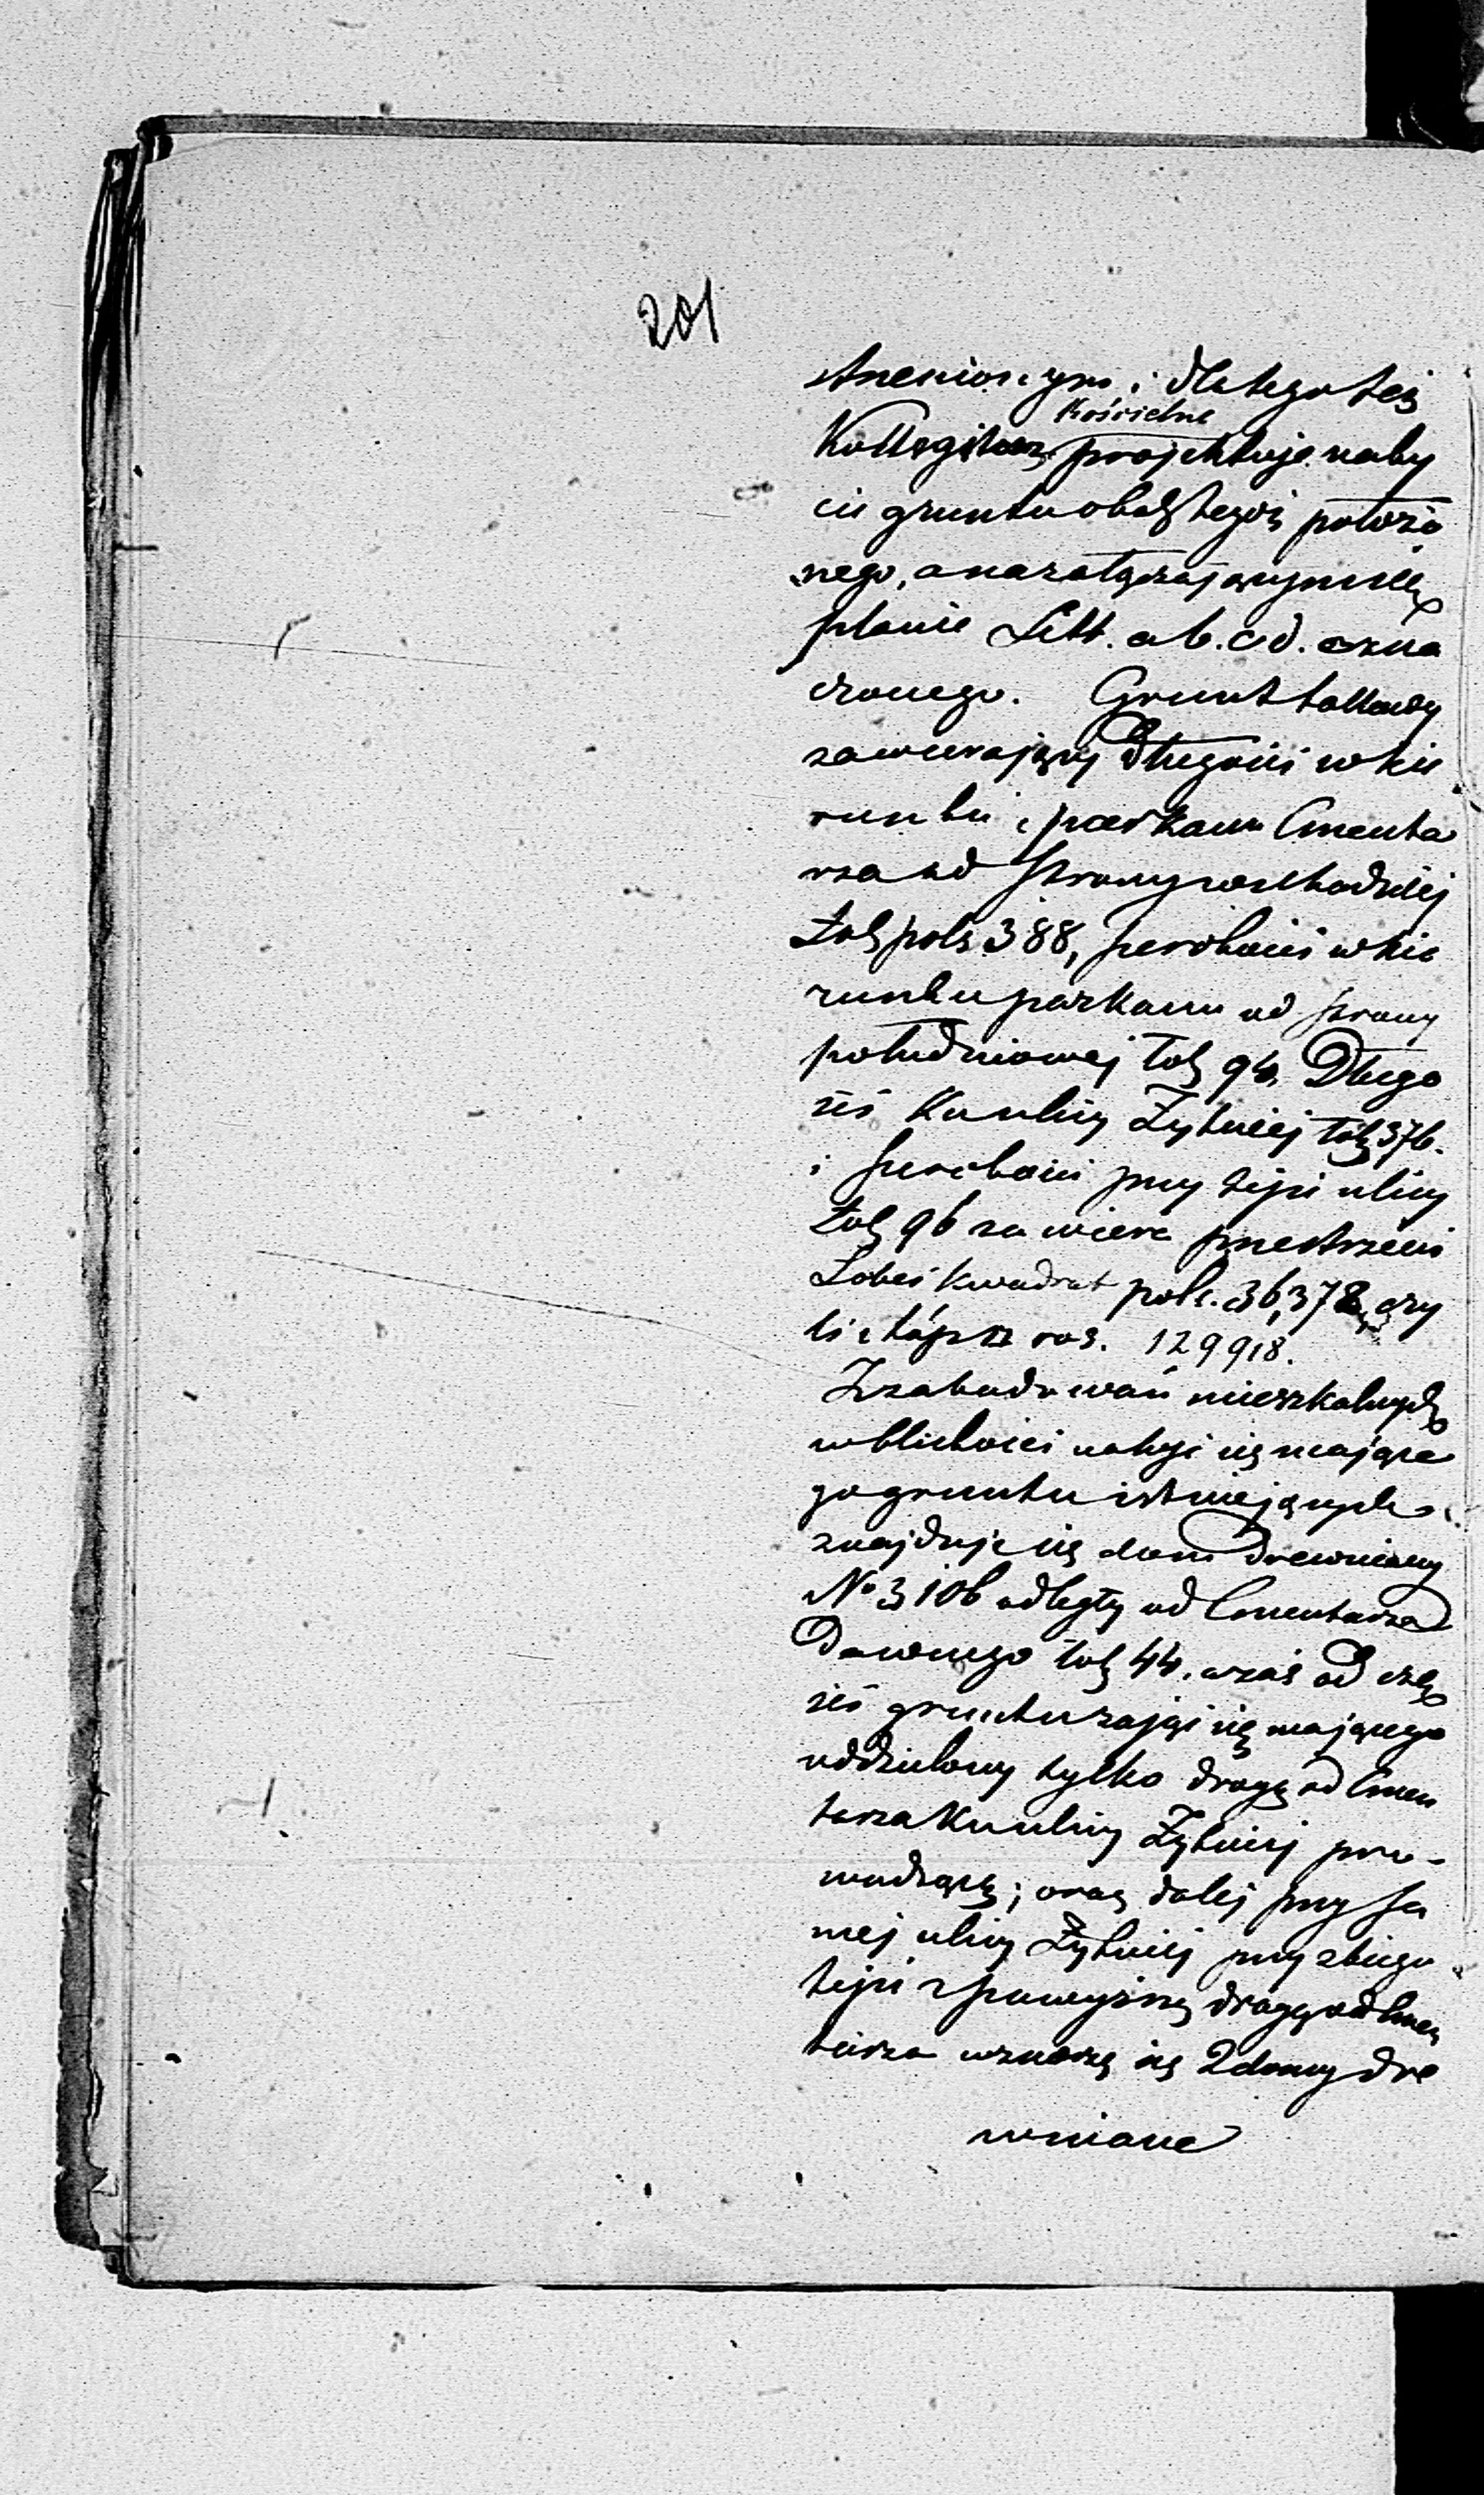 201
strzenionym i dlatego też
Kościelne
Kollegium projektuje naby
cie gruntu obok tegoż położo
nego, a na załączającym się
planie Litt. a b. c d. ozna
czonego. Grunt takowy
zawierający długości w kie
runku parkanu Cmenta
rza od strony wschodniej
Łok pols 388, szerokości w kie
runku parkanu od strony
południowej łok 94. Długo
ści Ku ulicy Żytniej łok 376.
i szerokości przy tejże ulicy
łok 96 zawiera przestrzeni
Łokci kwadrat pols. 36,378, czy
li stóp ros. 129918.
Z zabudowań mieszkalnych
w bliskości nabyć się mające
go gruntu istniejących
znajduje się dom drewniany
No 3106 odległy od Cmentarza
Dawnego łok 44. a zaś od czę
ści gruntu zająć się mającego
oddzielony tylko drogą od Cmen
tarza Ku ulicy Żytniej pro-
wadzącą; oraz dalej przy sa
mej ulicy Żytniej przy zbiegu
tejże z powyższą drogą od Cmen
tarza wznoszą się 2 domy dre
wniane